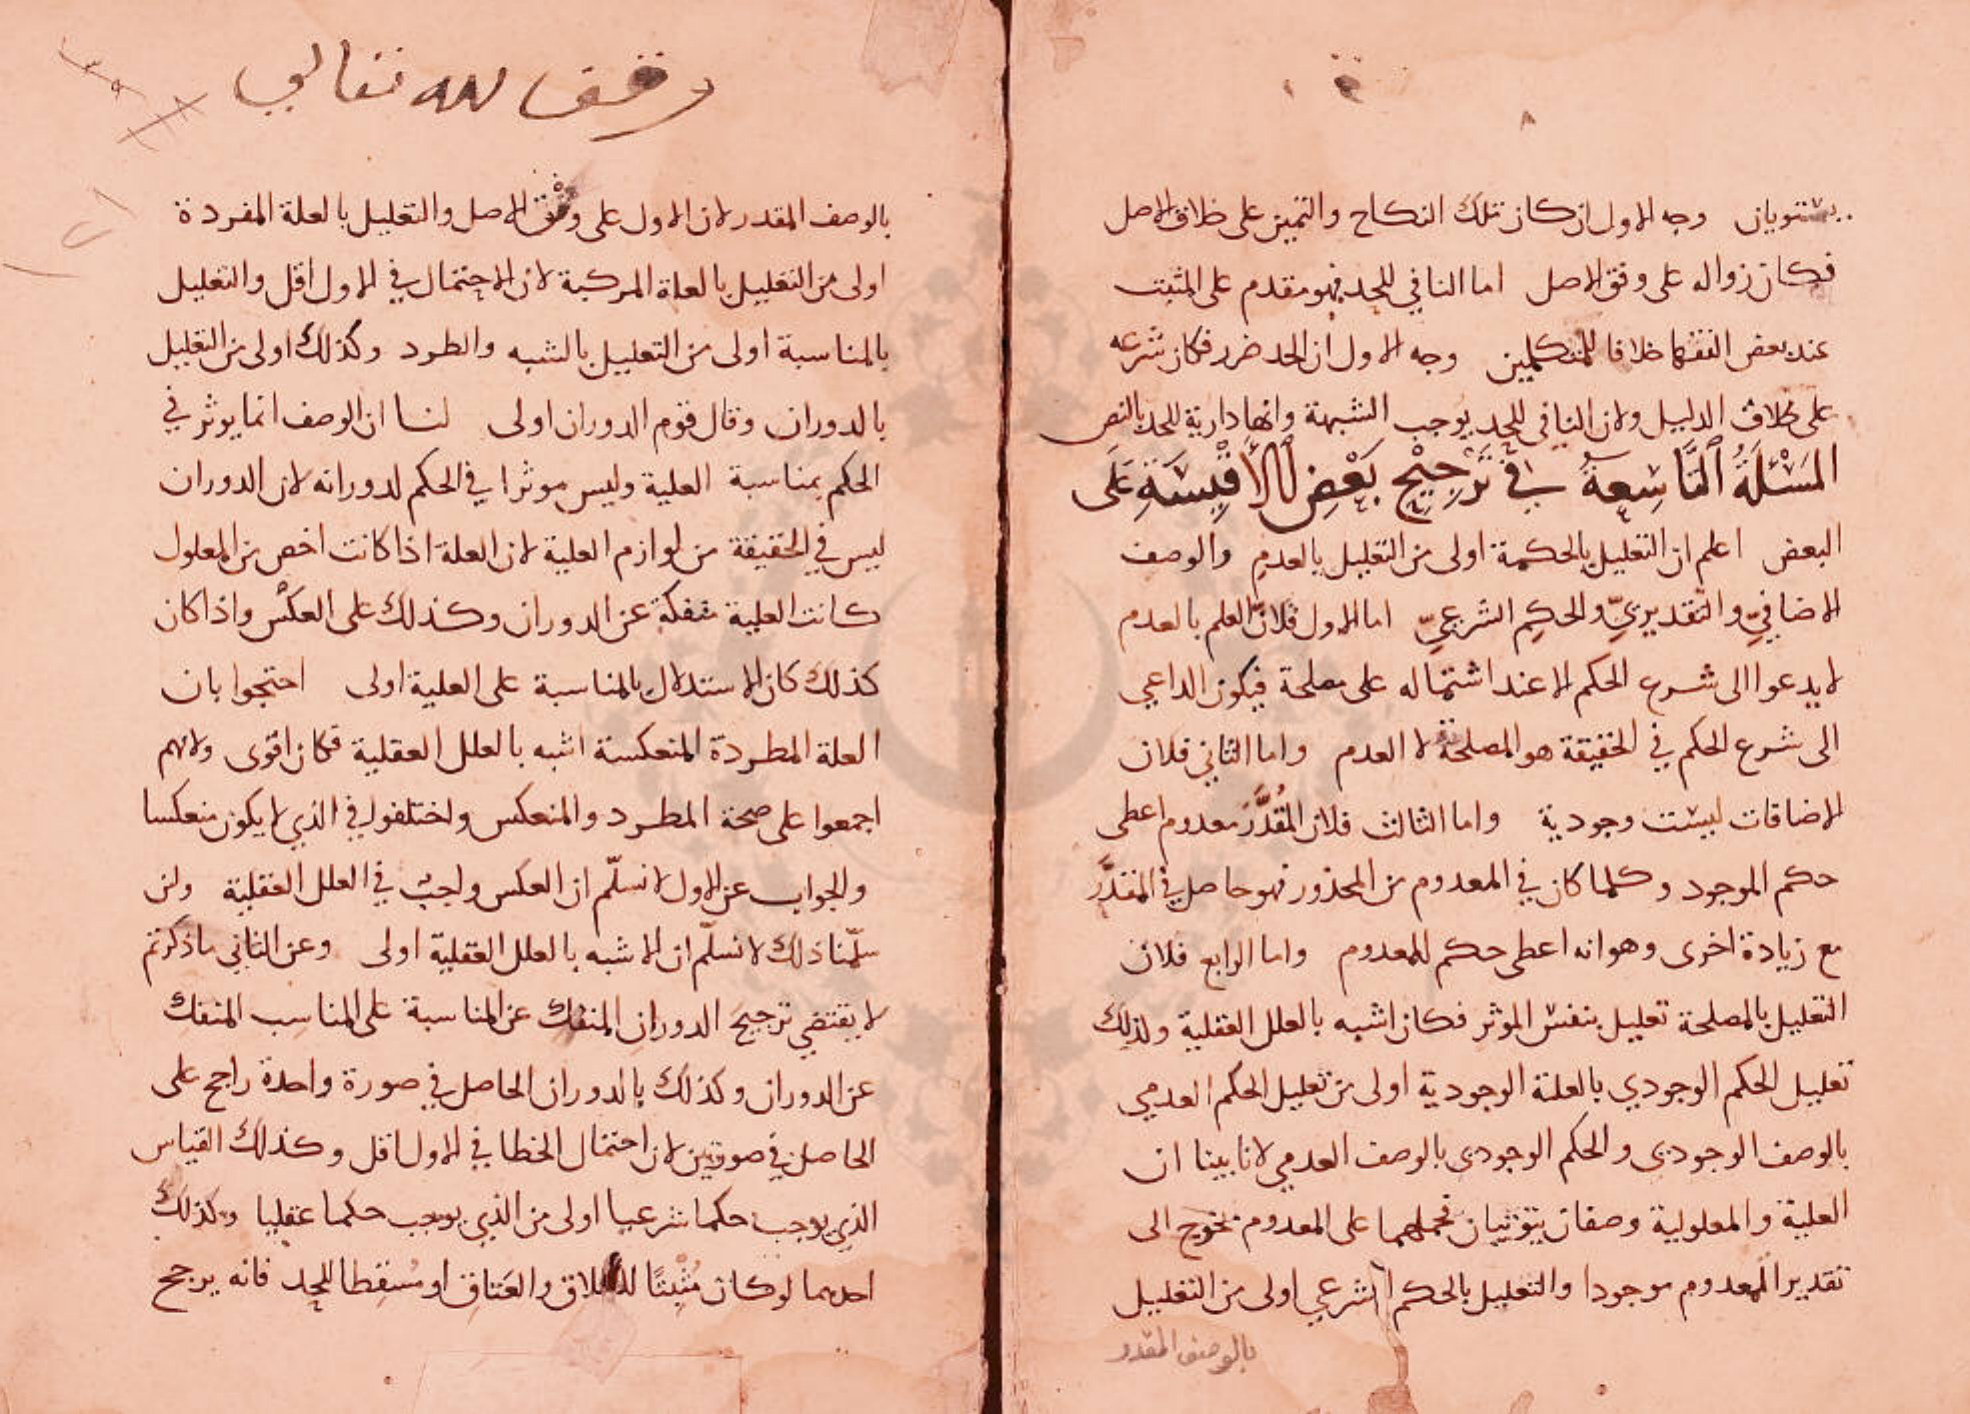 يستويان وجه الاول ان كان تلك النكاح والتمين على خلاف الاصل
فكان زواله على وفق الاصل اما النافي للحد فهو مقدم على المثبت
عند بعض الفقها خلافا للمتكلمين وجه الاول ان الحد ضرر فكان شرعه
على خلاف الدليل ولان النافي للحد يوجب الشبهة وانها دارية للحد بالنص
المَسْئَلَةُ التَّاسِعةُ في تَرْجِيْحِ بَعْضِ الأَقْيِسَةِ عَلَى
البعض اعلم ان التعليل بالحكمة اولى من التعليل بالعدم والوصف
الاضافيّ والتقديريّ والحكمِ الشرعيّ اما الاول فلانّ العلم بالعدم
لا يدعوا الى شرع الحكم الا عند اشتماله على مصلحة فيكون الداعي
الى شرع الحكم في الحقيقة هو المصلحة لا العدم واما الثاني فلان
الاضافات ليست وجودية واما الثالث فلان المُقدَّرَ معدوم اعطى
حكم الموجود وكلما كان في المعدوم من المحذور فهو حاصل في المقدَّر
مع زيادة اخرى وهو انه اعطى حكم للمعدوم واما الرابع فلان
التعليل بالمصلحة تعليل بنفس الموثر فكان اشبه بالعلل العقلية ولذلك
تعليل الحكم الوجودي بالعلة الوجودية اولى من تعليل الحكم العدمي
بالوصف الوجودى والحكم الوجودى بالوصف العدمي لانا بينا ان
العلية والمعلولية وصفان ثبوتيان فحملهما على المعدوم يحوج الى
تقدير المعدوم موجودا والتعليل بالحكم الشرعي اولى من التعليل
بالوصف المقدر
وقف لله تعالى
بالوصف المقدر لان الاول على وفق الاصل والتعليل بالعلة المفردة
اولى من التعليل بالعلة المركبة لان الاحتمال في الاول اقل والتعليل
بالمناسبة اولى من التعليل بالشبه والطرد وكذلك اولى من التعليل
بالدوران وقال قوم الدوران اولى لنا ان الوصف انما يوثر في
الحكم بمناسبة العلية وليس موثرا في الحكم لدورانه لان الدوران
ليس في الحقيقة من لوازم العلية لان العلة اذا كانت اخص من المعلول
كانت العلية منفكة عن الدوران وكذلك على العكس واذا كان
كذلك كان الاستدلال بالمناسبة على العلية اولى احتجوا بان
العلة المطردة المنعكسة اشبه بالعلل العقلية فكان اقوى ولانهم
اجمعوا على صحة المطرد والمنعكس واختلفوا في الذي لا يكون منعكسا
والجواب عن الاول لا نسلّم ان العكس واجب في العلل العقلية ولئن
سلّمنا ذلك لا نسلّم ان الاشبه بالعلل العقلية اولى وعن الثاني ما ذكرتم
لا يقتضي ترجيح الدوران المنفك عن المناسبة على المناسب المنفك
عن الدوران وكذلك بالدوران الحاصل في صورة واحدة راجح على
الحاصل في صورتين لان احتمال الخطا في الاول اقل وكذلك القياس
الذي يوجب حكما شرعيا اولى من الذي يوجب حكما عقليا وكذلك
احدهما لو كان مُثبِتًا للطلاق والعَتاق او مُسقطا للحد فانه يرجح